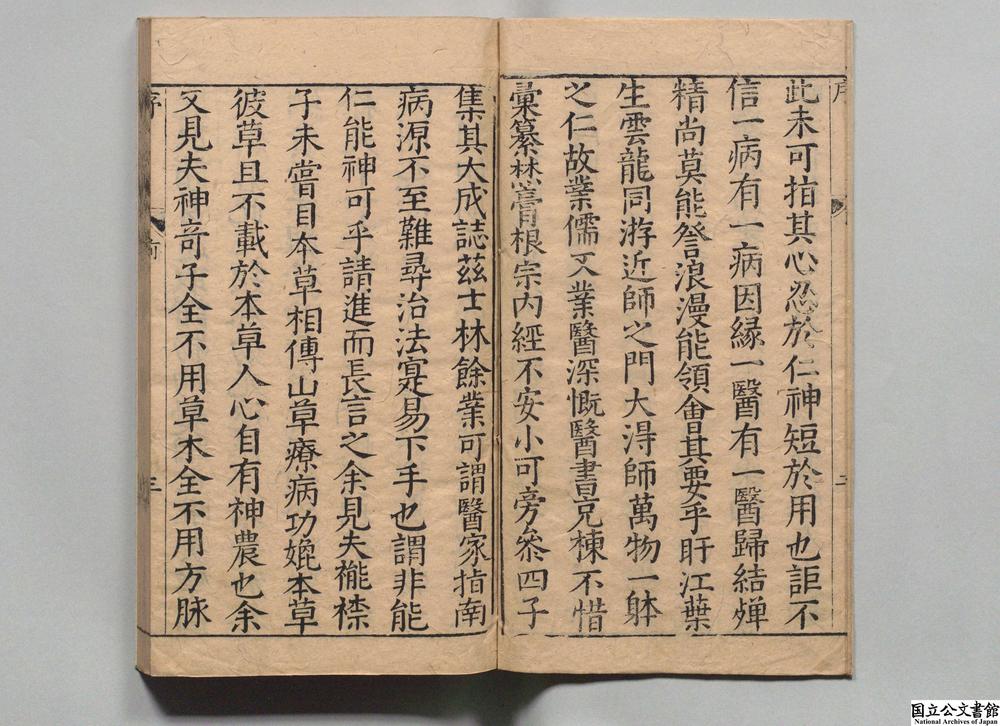 序
三
此未可指其心忍於仁神短於用也詎不
信一病有一病因緣一醫有一醫歸結殫
精尚莫能詧浪漫能領會其要乎盱江葉
生雲龍同游近師之門大淂師萬物一躰
之仁故業儒又業醫深慨醫書兄棟不惜
彚纂焚膏根宗內經不安小可旁叅四子
集其大成誌茲士林餘業可謂醫家指南
病源不至難尋治法寔易下手也謂非能
仁能神可乎請進而長言之余見夫褦襟
子未嘗目本草相傳山草療病功娩本草
彼草且不載於本草人心自有神農也余
又見夫神奇子全不用草木全不用方脉
序
三
国立公文書館
National Archives of Japan